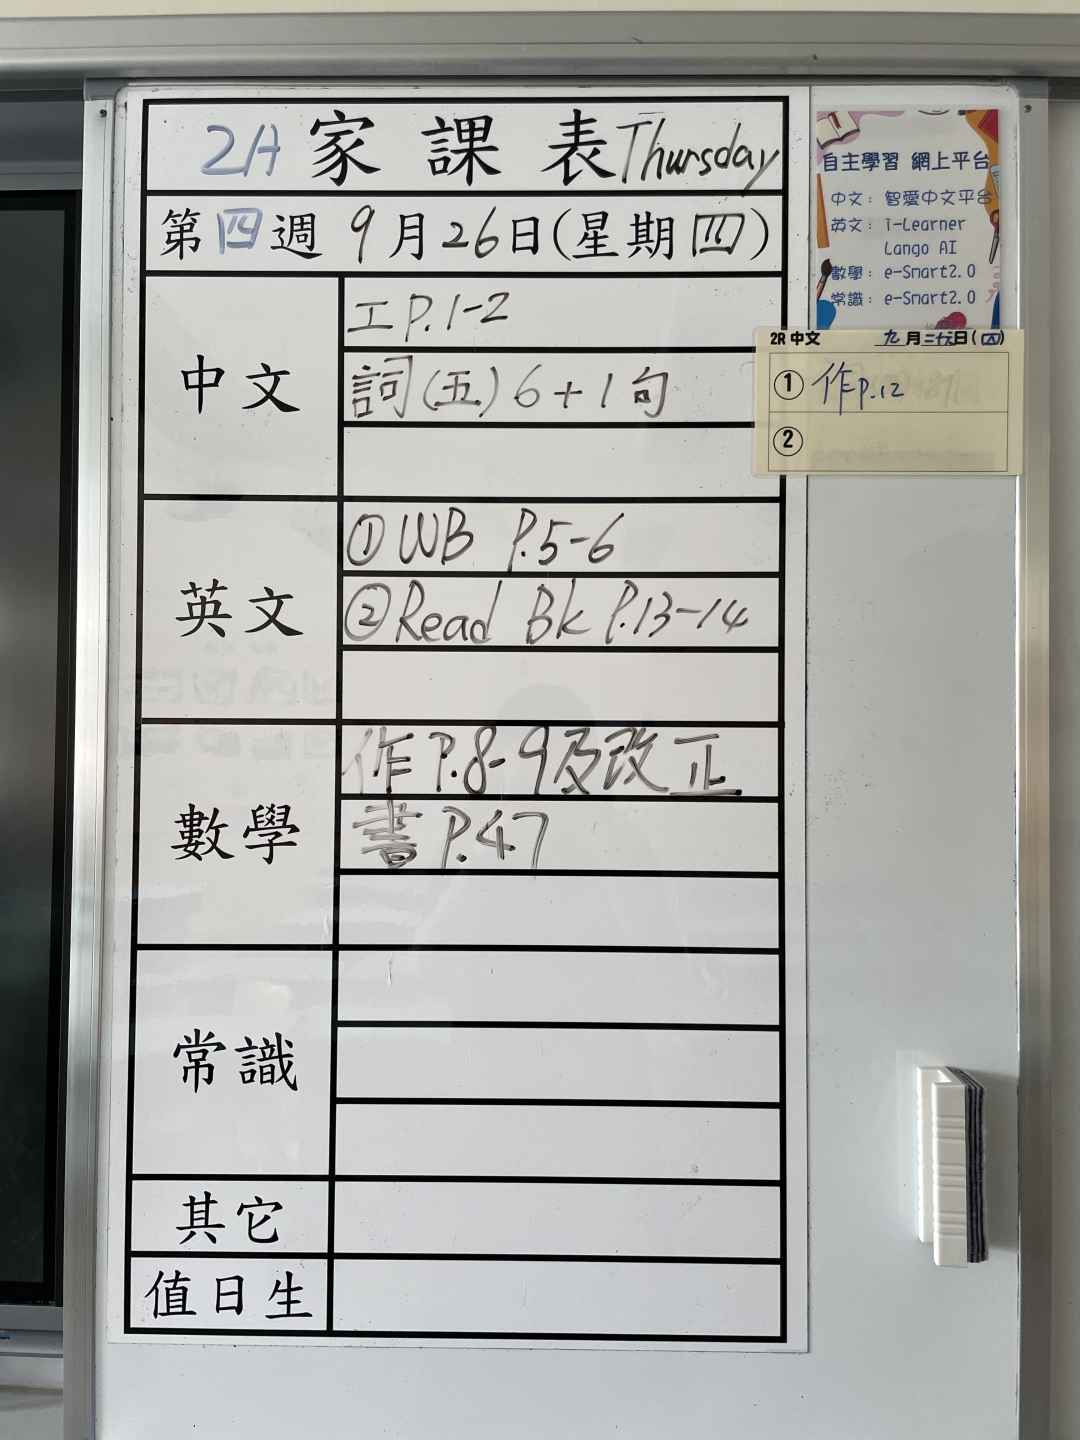 2A 家課表 Thursday
第四週 9月26日(星期四)
中文
工 P.1-2
詞(五) 6+1句
英文
① WB P.5-6
② Read Bk P.13-14
數學
作 P.8-9及改正
書 P.47
常識
其它
值日生
自主學習 網上平台
中文: 智愛中文平台
英文: i-Learner
Lango AI
數學: e-Smart2.0
常識: e-Smart2.0
2R 中文 九月二十六日(四)
① 作P.12
②